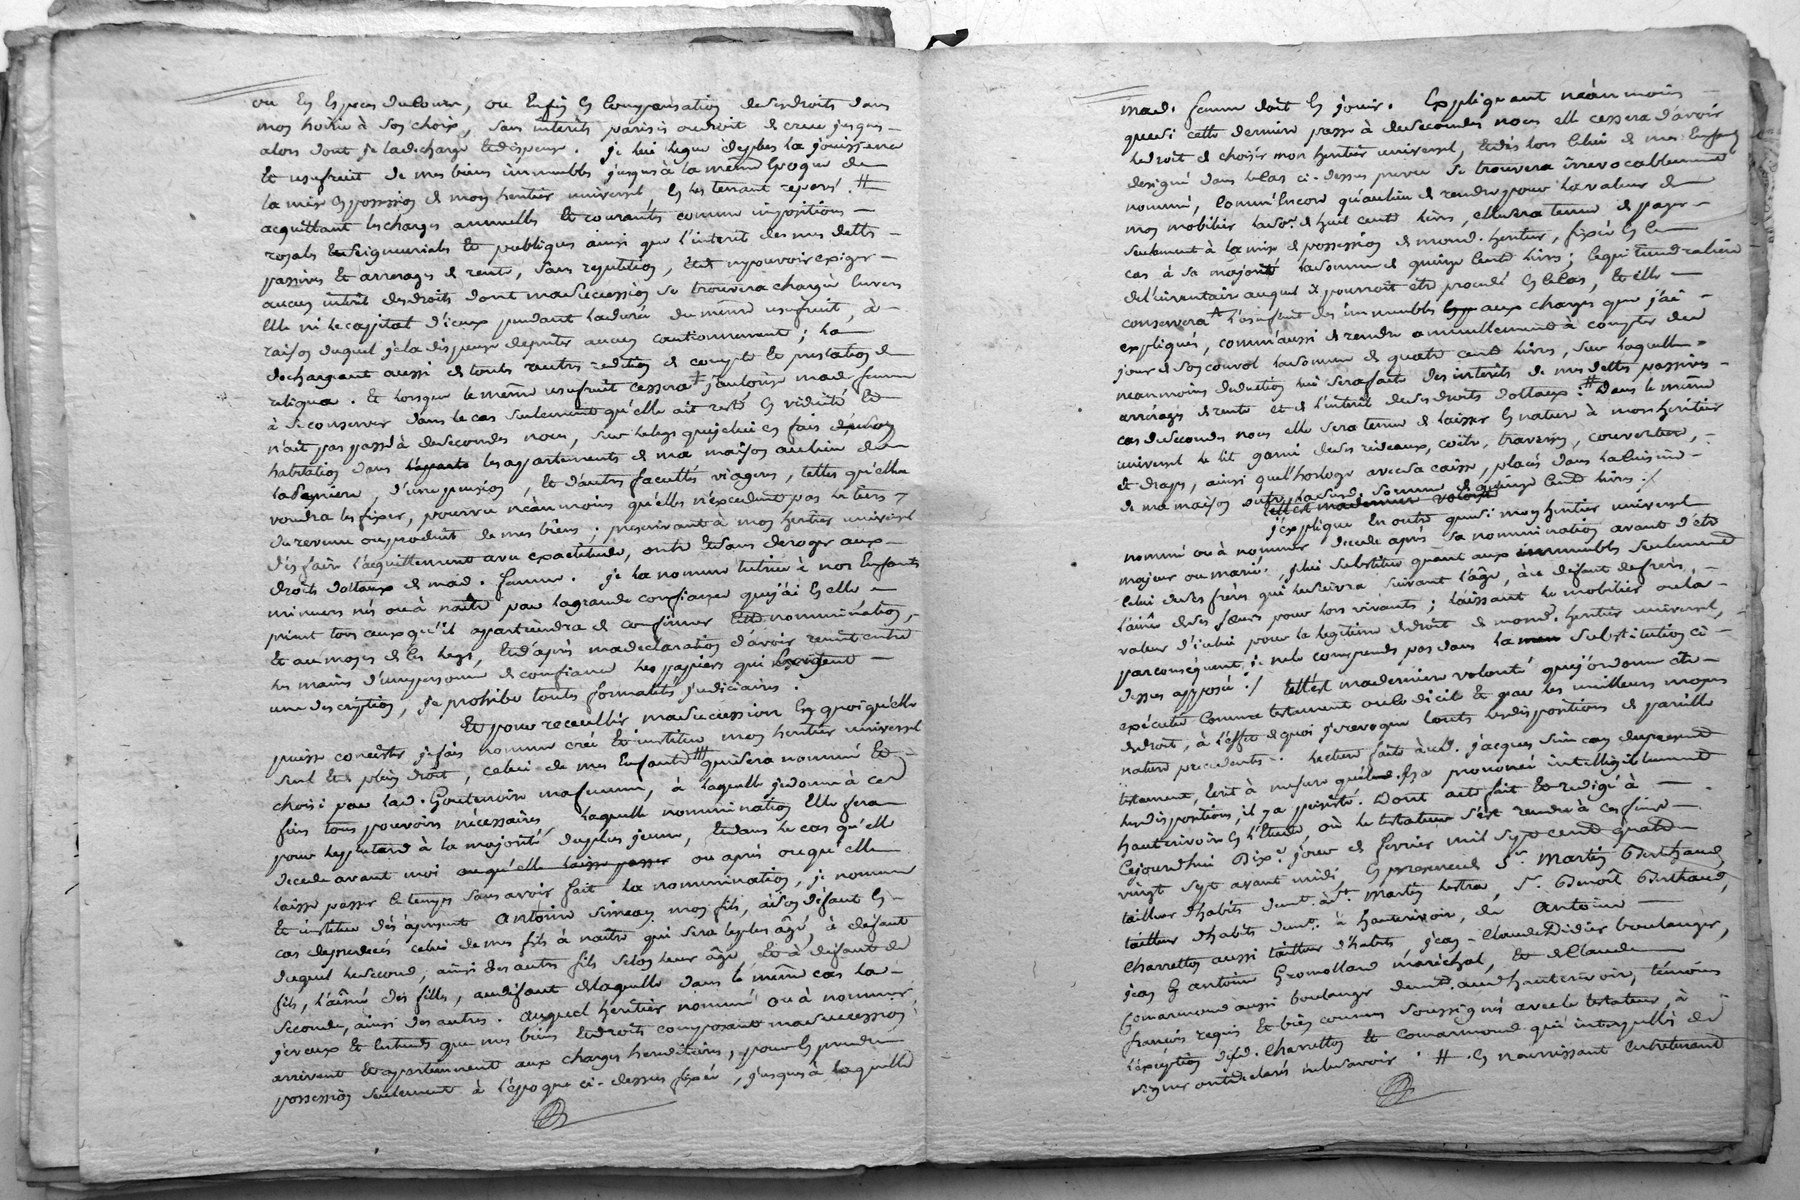 ou En Especes du Cours, ou Enfin En Compensation de ses droits dans
mon hoirie à son choix, sans interêts parisis ou droit de crue jusques
alors dont je la decharge Et dispense. je lui legue de plus la jouissance
Et usufruit de mes biens immeubles jusques à la même Epoque de
la mise En possession de mon heritier universel En les tenant reparés. #
acquittant les charges annuelles Et courantes comme impositions
royales Et seigneuriales Et publiques ainsi que l'interêt de mes dettes
passives Et arrerages de rente, sans repetition, Et de n'y pouvoir exiger
aucun intérêt des droits dont ma Succession se trouvera chargée Envers
Elle ni le capital d'iceux pendant la durée du même usufruit, à
raison duquel je la dispense de prêter aucun cautionnement ; la
dechargeant aussi de toute reddition de compte Et prestation de
reliqua. Et lorsque le même usufruit cessera j'autorise mad. femme
à se conserver dans le cas seulement qu'elle ait resté En viduité Et
n'ait pas passé à de secondes noces, sur le legs que je lui En fais
habitation dans les appartements de ma maison au lieu de
d'une pension, Et d'autres facultés viageres, telles qu'elle
voudra les fixer, pourvu néanmoins qu'elles n'excedent pas le tiers
du revenu ou produit de mes biens ; prescrivant à mon heritier universel
d'En faire l'acquittement avec exactitude, outre Et sans deroger aux
droits dotaux de mad. femme. je la nomme tutrice à nos Enfants
mineurs nés ou à naitre par la grande confiance que j'ai En elle
priant tous ceux qu'il appartiendra de confirmer cette nomination,
Et au moyen de Ces legs, Et d'après ma declaration d'avoir remis entre
les mains d'une personne de confiance les papiers qui Exigent
une description, je prohibe toutes formalités judiciaires.
Et pour receuillir ma succession En quoi qu'elle
puisse consister je fais nomme créé Et institue mon heritier universel
seul Et de plein droit, celui de mes Enfants qui sera nommé Et
choisi par lad. Goutenoire ma femme, à laquelle je donne à cet
fins tous pouvoirs nécessaires laquelle nomination Elle fera
pour le plus tard à la majorité du plus jeune, Et dans le cas qu'elle
decede avant moi ou qu'elle laisse passer ou après ou qu'elle
laisse passer le temps sans avoir fait la nomination, je nomme
Et institue dès à present Antoine Simeon mon fils, à son défaut En
cas de predecès celui de mes fils à naitre qui sera le plus âgé, à defaut
duquel le second, ainsi des autres fils selon leur âge, Et à défaut de
fils, l'aînée des filles, au défaut de laquelle dans le même cas la
Seconde, ainsi des autres. auquel héritier nommé ou à nommer
je veux Et Entends que mes biens Et droits composant ma succession
arrivent Et appartiennent aux charges hereditaires, pour En prendre
possession seulement à l'époque ci-dessus fixée, jusques à laquelle
mad. femme doit En jouir. Expliquant néanmoins
que si cette derniere passe à de secondes noces elle cessera d'avoir
le droit de choisir mon heritier universel, Et dès lors Celui de mes Enfants
designé dans le cas ci-dessus prevu se trouvera irrevocablement
nommé, Comm'Encore qu'au lieu de rendre pour la valeur de
mon mobilier la so.e de huit cents livres, elle sera tenue de payer
seulement à la mise de possession de mond. heritier, fixée En ce
cas à sa majorité la somme de quinze Cents livres ; lequi tiendra lieu
de l'inventaire auquel il pourroit etre procédé En ce Cas, Et elle
conservera l'usufruit des immeubles aux charges que j'ai
expliqués, comm'aussi de rendre annuellement à compter du
jour de son convol la somme de quatre cents livres, sur laquelle
néanmoins deduction lui sera faite des interêts de mes dettes passives
arrerages de rente et de l'interêt de ses droits dotaux. # Dans le même
cas de secondes noces elle sera tenue de laisser En nature à mon heritier
universel le lit garni de ses rideaux, coëtre, traversin, couverture,
Et draps, ainsi que l'horloge avec sa caisse, placés dans la cuisine
de ma maison outre lad. somme de quinze Cents livres./
telle est ma derniere volonté
j'explique En outre que si mon heritier universel
nommé ou à nommer decede après sa nomination avant d'être
majeur ou marié, je lui substitue quant aux immeubles seulement
Celui de ses frères qui le suivra suivant l'âge, à ce defaut de freres,
l'ainée de ses soeurs pour lors vivants ; laissant le mobilier ou la
valeur d'icelui pour la legitime de droit de mond. heritier universel,
par consequent je ne le comprends pas dans la substitution ci-
dessus apposée :/ telle est ma derniere volonté que j'ordonne être
exécutée Comme testament ou codicile Et par les meilleurs moyens
de droit, à l'Effet de quoi je revoque toutes les dispositions de pareille
nature precedentes. lecture faite aud. jacques Simeon du present
testament, Ecrit à mesure qu'il En a prononcé intelligiblement
les dispositions, il y a persisté. Dont acte fait Et redigé à
hauterivoire En l'Etude, où le testateur s'est rendu à ces fins
Cejourd'hui Dix.e jour de fevrier mil sept cent quatre
vingt sept avant midi En presence de S.r Martin Berthaud
tailleur d'habits dem.t à S.t Martin lestra, S.r Benoît Berthaud,
tailleur d'habits dem.t à hauterivoir, de Antoine
Charretton aussi tailleur d'habits, jean-Claude Didier boulanger,
jean antoine Gromolland maréchal, Et de Claude
Comarmond aussi boulanger dem.t aud. hauterivoir, témoins
françois requis Et bien connus soussignés avec le testateur, à
l'exception desd. Charretton Et Comarmond qui interpellés de
signer ont declaré ne le savoir. # . En nourrissant Entretenant